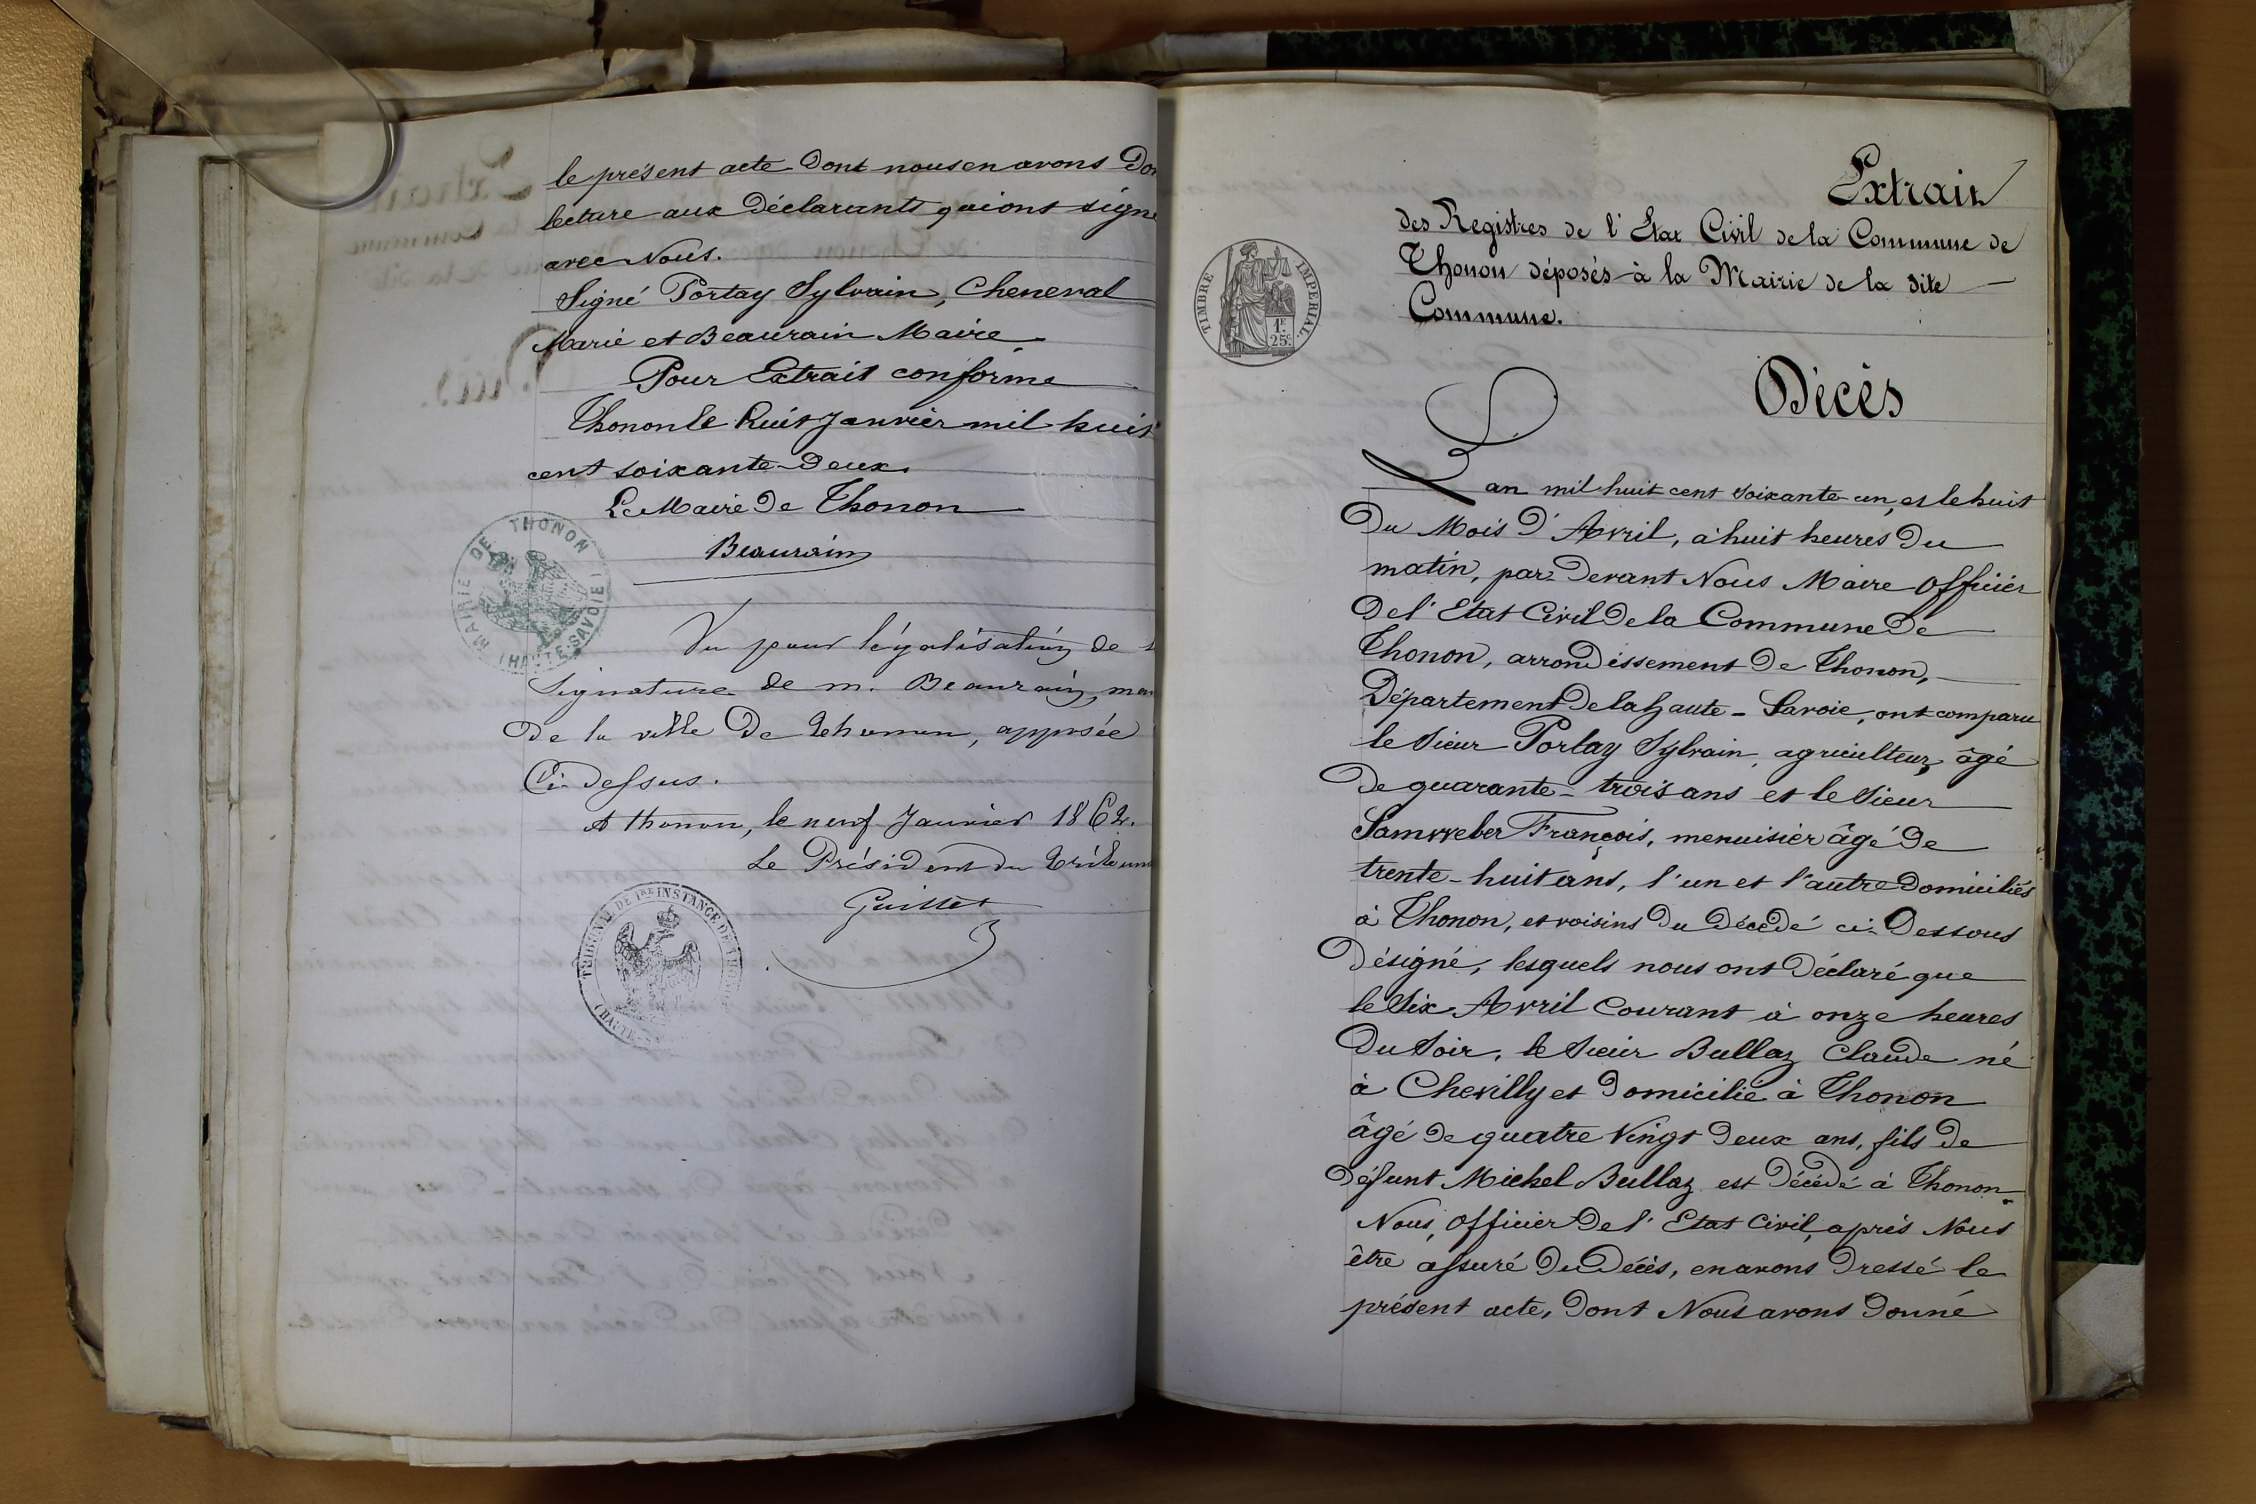 le présent acte dont nous en avons
lecture aux déclarants qui ont signé
avec Nous.
Signé Portay Sylvain, Cheneval
Marie et Beaurain Maire
Pour Extrait conforme
Thonon le huit Janvier mil huit
cent soixante-deux.
Le Maire de Thonon
Beaurain
MAIRIE DE THONON (HAUTE-SAVOIE)
Vu pour légalisation de
signature de m. Beaurain,
de la ville de Thonon, apposée
Ci-dessus.
A thonon, le neuf Janvier 1862.
Le Président du
Guillet
TRIBUNAL DE 1ERE INSTANCE DE
Extrait
des Registres de l'Etat Civil de la Commune de
Thonon déposés à la Mairie de la dite
Commune.
TIMBRE IMPERIAL
1F.
25C.
Décès
L'an mil huit cent soixante-un, et le huit
Du Mois D'Avril, à huit heures Du
matin, par Devant Nous Maire Officier
De l'Etat Civil De la Commune De
Thonon, arrondissement De Thonon,
Département De la haute-Savoie, ont comparu
le Sieur Portay Sylvain, agriculteur, âgé
De quarante-trois ans et le Sieur
Samweber François, menuisier âgé De
trente-huit ans, l'un et l'autre Domiciliés
à Thonon, et voisins Du Décédé ci-Dessous
Désigné, lesquels nous ont Déclaré que
le Six Avril Courant à onze heures
Du Soir, le Sieur Bullaz Claude né
à Chevilly et Domicilié à Thonon
âgé De quatre Vingt Deux ans, fils De
Défunt Michel Bullaz est Décédé à Thonon.
Nous, Officier De l'Etat Civil, après Nous
être assuré Du Décès, en avons Dressé le
présent acte, Dont Nous avons Donné